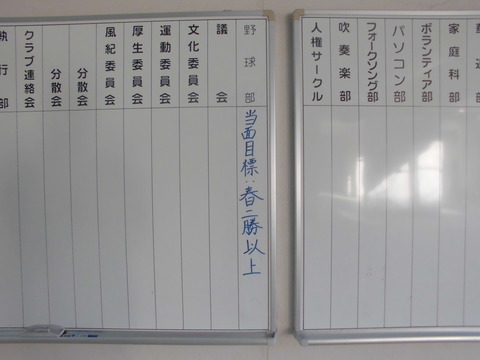 野球部
当面目標:春二勝以上
議会
文化委員会
運動委員会
厚生委員会
風紀委員会
分散会
分散会
クラブ連絡会
執行部
家庭科部
ボランティア部
パソコン部
フォークソング部
吹奏楽部
人権サークル